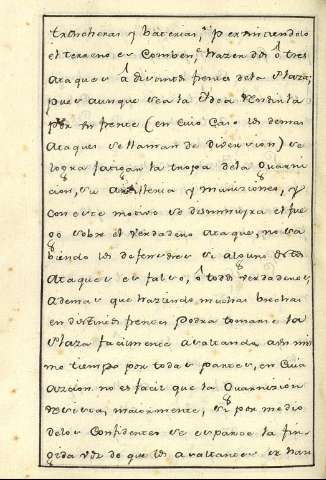 trincheras y baterias, y permitiendolo
el terreno es comben.te hazer dos ô tres
ataques â distintos frentes de la Plaza;
pues aunque sea la Ydea rendirla
por un frente (en cuio caso los demas
ataques se llaman de diversion) se
logra fatigar la tropa dela Guarni
cion, su Artilleria y municiones, y
con este motivo se disminuira el fue
go sobre el verdadero ataque, no sa
biendo los defensores si alguno de tos
ataques es falso, ô todos verdaderos
Ademas que haziendo muchas brechas
en distintos frentes podra tomarse la
Plaza facilmente asaltando a un mis
mo tiempo por todas partes, en cuia
accion no es facil que la Guarnicion
resista, maiormente, si por medio
delos Confidentes se esparce la fin
gida voz de que los asaltantes se han